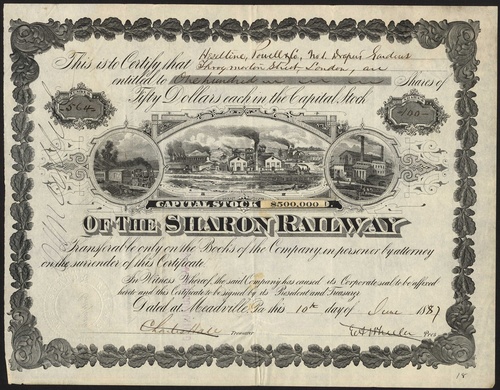 This is to Certify that Heseltine, Powell & Co, No 1. Drapers Gardens
Throgmorton Street, London, are
entitled to One hundred Shares of
Fifty Dollars each in the Capital Stock
564
100
CAPITAL STOCK $500,000
OF THE SHARON RAILWAY
Transferable only on the Books of the Company, in person or by attorney
on the surrender of this Certificate.
In Witness Whereof, the said Company has caused its Corporate seal to be affixed
hereto and this Certificate to be signed by its President and Treasurer
Dated at Meadville, Pa this 10th day of June 1887
Treasurer
Pres
18